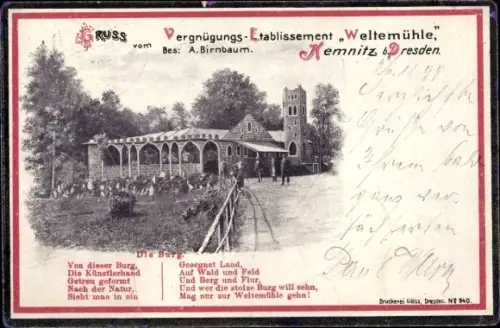 Gruss vom Vergnügungs-Etablissement „Weltemühle,"
Bes: A. Birnbaum. Kemnitz b/Dresden.
Die Burg.
Von dieser Burg,
Die Künstlerhand
Getreu geformt
Nach der Natur,
Sieht man in ein
Gesegnet Land,
Auf Wald und Feld
Und Berg und Flur,
Und wer die stolze Burg will sehn,
Mag nur zur Weltemühle gehn!
Grüsse von
Ihrem
Druckerei Glöss, Dresden. No 940.